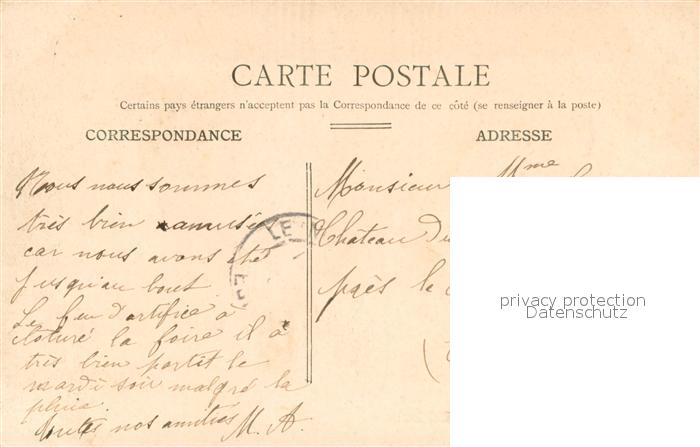 CARTE POSTALE
Certains pays étrangers n'acceptent pas la Correspondance de ce côté (se renseigner à la poste)
CORRESPONDANCE
ADRESSE
Nous nous sommes
très bien amusés
car nous avons été
jusqu'au bout
Le feu d'artifice à
cloturé la foire il à
très bien partit le
mardi soir malgré la
pluie.
toutes nos amitiés M. A.
Monsieur Mme
Chateau du
près le
privacy protection
Datenschutz